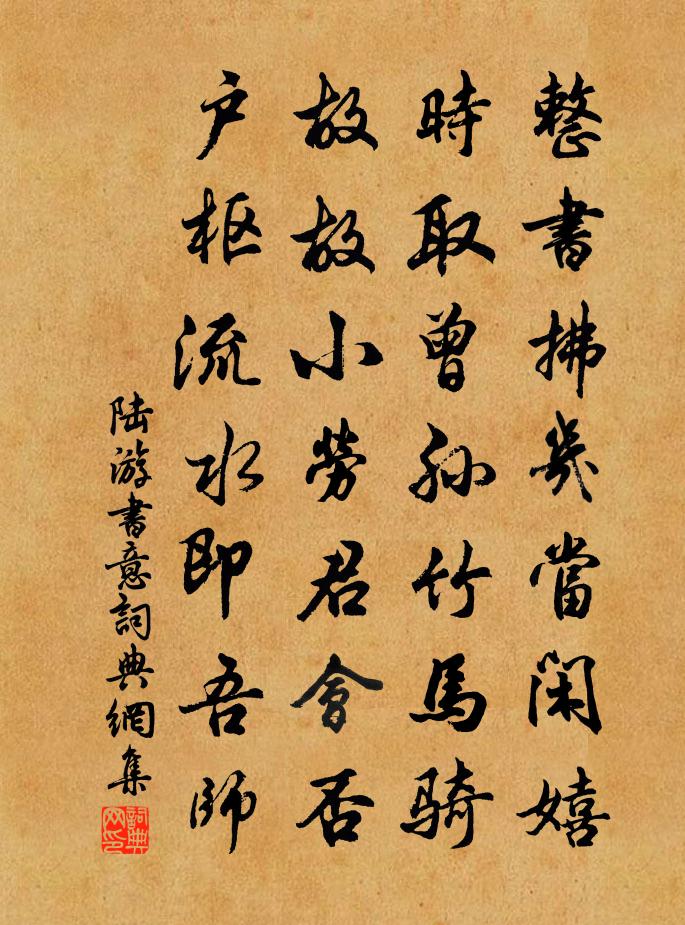 整書拂几當閑嬉
時取曾孫竹馬騎
故故小勞君會否
户枢流水即吾師
陆游書意詞典網集
詞典网印